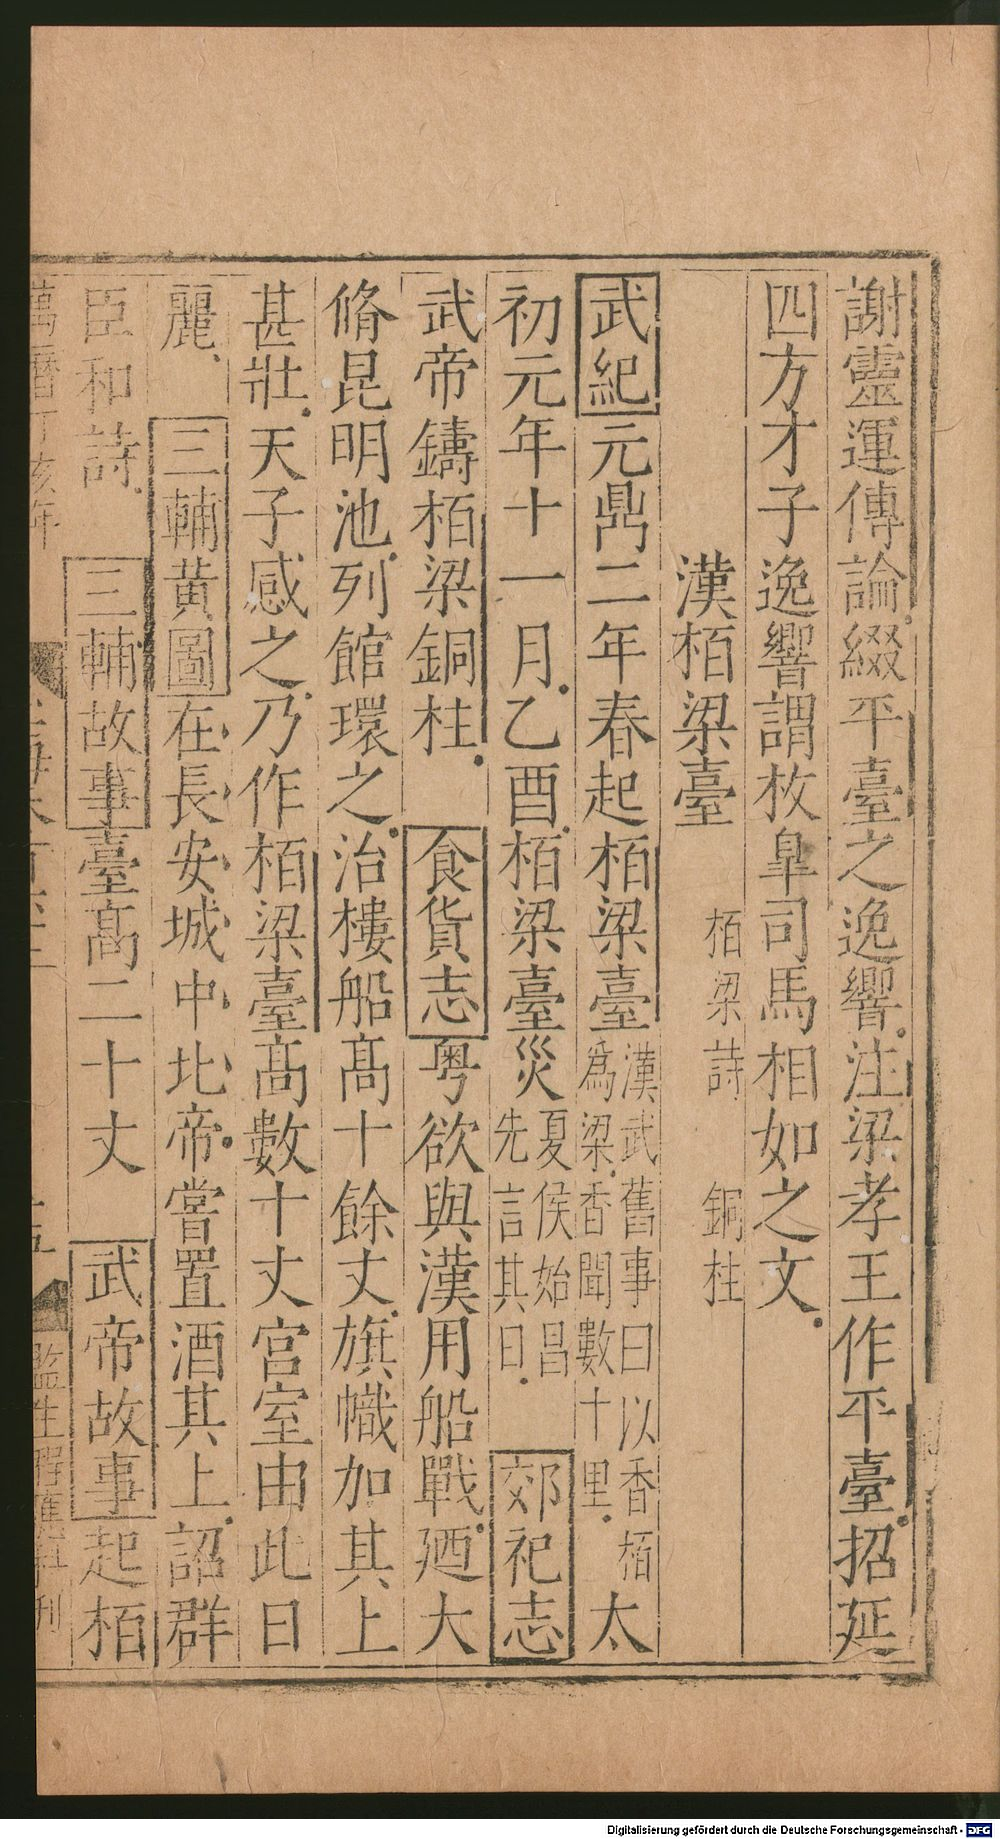 謝靈運傳論綴平臺之逸響注梁孝王作平臺招延
四方才子逸響謂枚皐司馬相如之文
漢栢梁臺 栢梁詩 銅柱
武紀元鼎二年春起栢梁臺漢武舊事曰以香栢為梁香聞數十里太
初元年十一月乙酉栢梁臺災夏侯始昌先言其日 郊祀志
武帝鑄栢梁銅柱 食貨志粵欲與漢用船戰廼大
脩昆明池列館環之治樓船高十餘丈旗幟加其上
甚壯天子感之乃作栢梁臺高數十丈宮室由此日
麗 三輔黃圖在長安城中北帝嘗置酒其上詔群
臣和詩 三輔故事臺高二十丈 武帝故事起栢
萬曆丁亥年 監生 刊
Digitalisierung gefördert durch die Deutsche Forschungsgemeinschaft - DFG